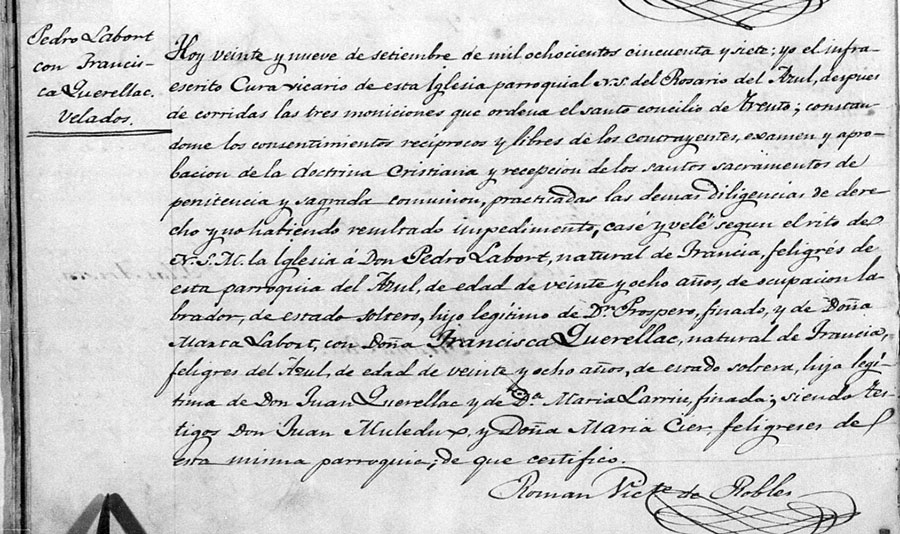 Pedro Labort
con Francis-
ca Querellac.
Velados.
Hoy veinte y nueve de setiembre de mil ochocientos cincuenta y siete: yo el infra-
escrito Cura vicario de esta Iglesia parroquial N.S. del Rosario del Azul, despues
de corridas las tres moniciones que ordena el santo concilio de Trento; constan-
dome los consentimientos reciprocos y libres de los contrayentes, examen y apro-
bacion de la doctrina Cristiana y recepcion de los santos sacramentos de
penitencia y sagrada comunion, practicadas las demas diligencias de dere-
cho y no habiendo resultado impedimento, casé y velé segun el rito de
N.S.M. la Iglesia á Don Pedro Labort, natural de Francia, feligrés de
esta parroquia del Azul, de edad de veinte y ocho años, de ocupacion la-
brador, de estado soltero, hijo legítimo de Dn. Prospero, finado, y de Doña
Marta Labort, con Doña Francisca Querellac, natural de Francia,
feligres del Azul, de edad de veinte y ocho años, de estado soltera, hija legí-
tima de Don Juan Querellac y de Da. Maria Larriu, finada; siendo tes-
tigos Don Juan Muledux, y Doña Maria Cier, feligreses de
esta misma parroquia; de que certifico.
Roman Victe de Robles